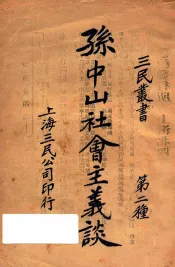 三民叢書
第二種
孫中山社會主義談
上海三民公司印行